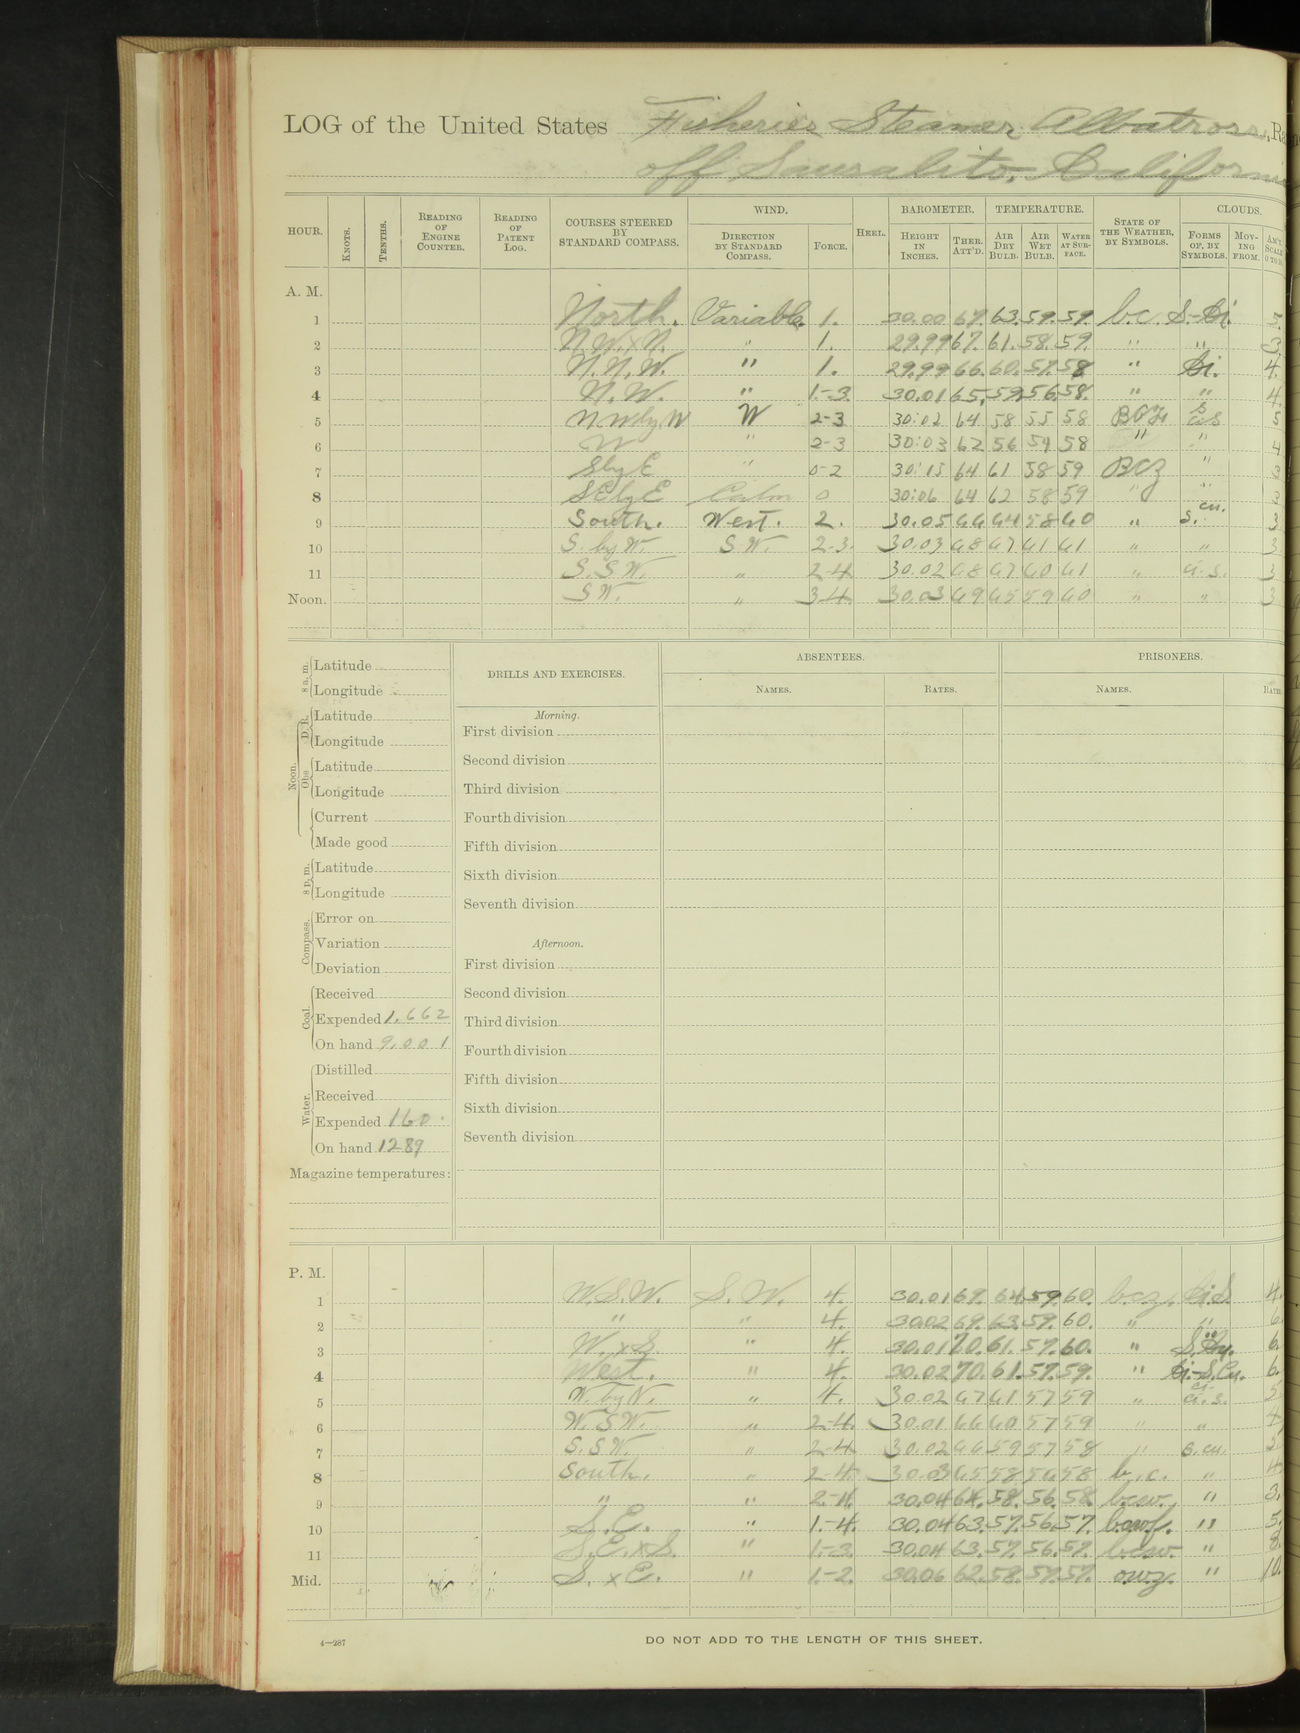 LOG of the United States Fisheries Steamer Albatross, Ra
off Sausalito, California
HOUR. KNOTS. TENTHS. READING OF ENGINE COUNTER. READING OF PATENT LOG. COURSES STEERED BY STANDARD COMPASS. WIND. DIRECTION BY STANDARD COMPASS. FORCE. HEEL. BAROMETER. HEIGHT IN INCHES. THER. ATT'D. TEMPERATURE. AIR DRY BULB. AIR WET BULB. WATER AT SURFACE. STATE OF THE WEATHER, BY SYMBOLS. CLOUDS. FORMS OF, BY SYMBOLS. MOVING FROM. AM'T, SCALE 0 TO 10.
A. M.
1 North. Variable. 1. 30.00 67. 63. 59. 59. b.c. S.-Ci. 3.
2 N.W.xN. " 1. 29.99 67. 61. 58. 59. " " 3
3 N.N.W. " 1. 29.99 66. 60. 57. 58 " Ci. 4.
4 N.W. " 1.-3. 30.01 65. 59 56. 58. " " 4.
5 NWbyW W 2-3 30:02 64 58 55 58 5
6 W " 2-3 30:03 62 56 54 58 " " 4
7 SbyE " 0-2 30:15 64 61 58 59 BCZ " 3
8 SEbyE Calm 0 30:06 64 62 58 59 " " 3
9 South. West. 2. 30.05 66 64 58 60 " s. cu. 3
10 S. by W. S.W. 2-3. 30.03 68 67 61 61 " " 3
11 S.S.W. " 2-4 30.02 68 67 60 61 " ci.s. 3
Noon. SW. " 3-4 30.03 69 65 59 60 " " 3
8 a. m. Latitude
Longitude
Noon. D. R. Latitude
Longitude
Obs. Latitude
Longitude
Current
Made good
8 p. m. Latitude
Longitude
Compass. Error on
Variation
Deviation
Coal. Received
Expended 1.662
On hand 9.001
Water. Distilled
Received
Expended 160.
On hand 1289
Magazine temperatures:
DRILLS AND EXERCISES.
Morning.
First division
Second division
Third division
Fourth division
Fifth division
Sixth division
Seventh division
Afternoon.
First division
Second division
Third division
Fourth division
Fifth division
Sixth division
Seventh division
ABSENTEES.
NAMES. RATES.
PRISONERS.
NAMES. RATES
P. M.
1 W.S.W. S.W. 4. 30.01 69. 64. 59. 60. bcz. Ci.S. 4.
2 " " 4. 30.02 69. 63. 59. 60. " " 6.
3 W.xS. " 4. 30.01 70. 61. 57. 60. " 6.
4 West. " 4. 30.02 70. 61. 57. 59. " Ci.-S.Cu. 6.
5 W. by N. " 4. 30.02 67 61 57 59 " ci.s. 5
6 W.SW. " 2-4. 30.01 66 60 57 59 " " 4
7 S.SW. " 2-4 30.02 66 59 57 58 " s.cu. 3
8 South. " 2-4. 30.03 65 58 56 58 b.c. " 4
9 " " 2.-4. 30.04 64. 58. 56. 58. bcw. " 3.
10 S.E. " 1.-4. 30.04 63. 57. 56. 57. " 5.
11 S.E.xS. " 1.-3. 30.04 63. 57. 56. 57. bcw. " 8.
Mid. S.xE. " 1.-2. 30.06 62. 58. 57. 57. owz. " 10.
4—287
DO NOT ADD TO THE LENGTH OF THIS SHEET.